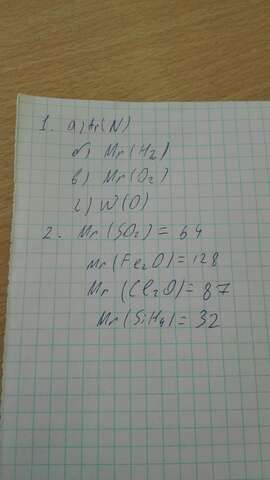 1. а) Ar(N)
б) Mr(H₂)
в) Mr(O₂)
г) W(O)
2. Mr(SO₂) = 64
Mr(Fe₂O) = 128
Mr(Cl₂O) = 87
Mr(SiH₄) = 32